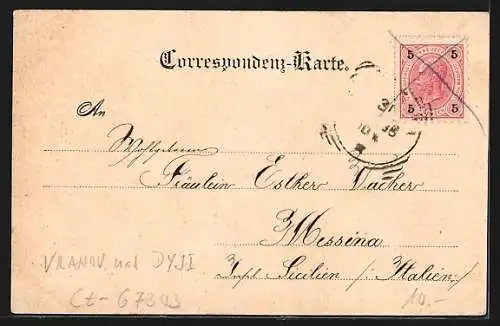 Correspondenz-Karte.
5 5
5 5
An
Wohlgeboren
Fräulein Esther Vacher
Messina
Insel Sicilien /: Italien :/
VRANOV nad DYJI
10.-